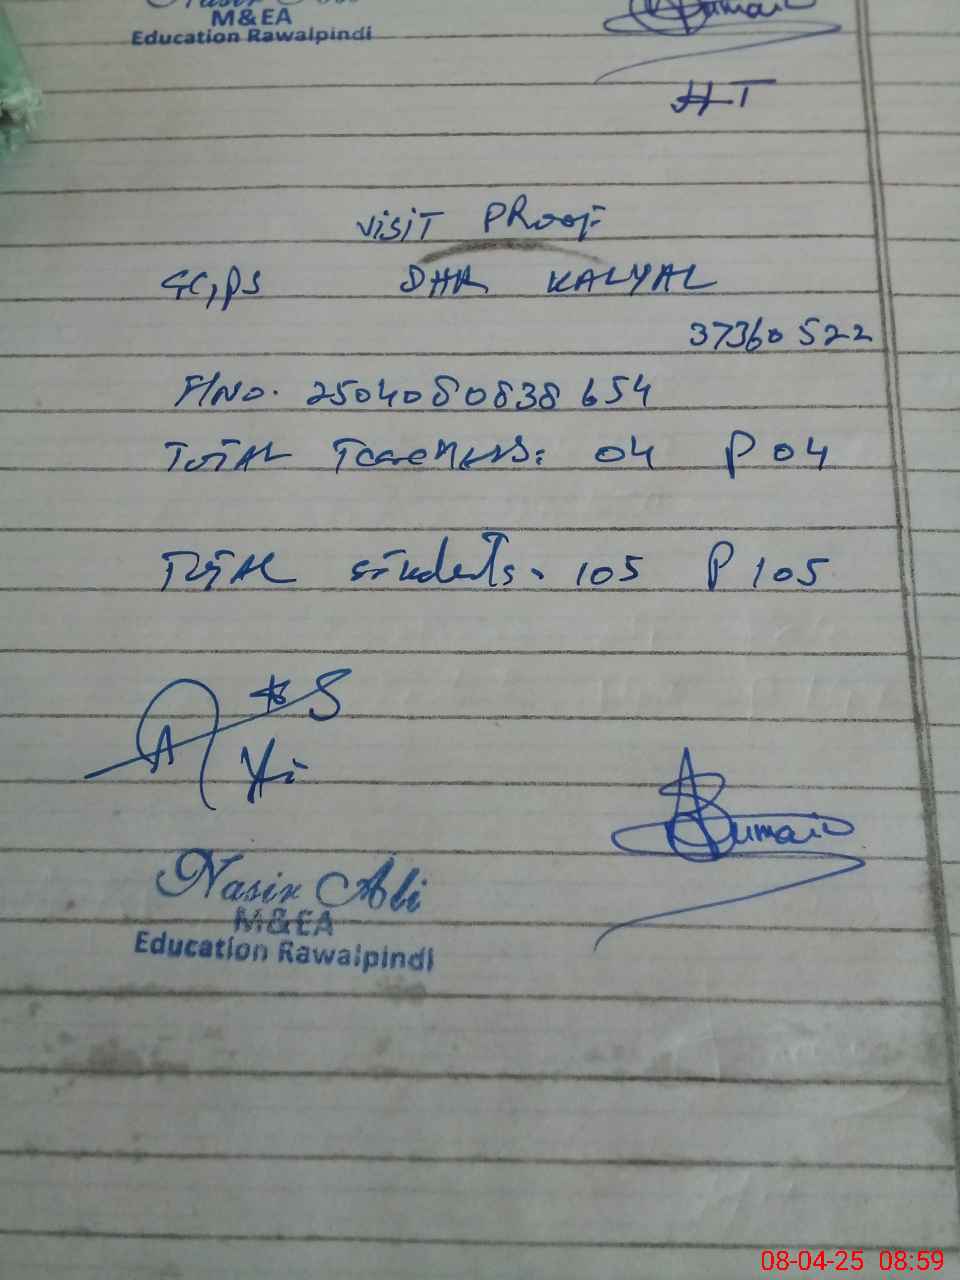 Nasir Ali
M&EA
Education Rawalpindi
Sumaira
HT
VISIT PROOF
GGPS DHK KALYAL
37360522
F/NO. 2504080838654
TOTAL Teachers: 04 P 04
TOTAL students. 105 P 105
Sumaira
Nasir Ali
M&EA
Education Rawalpindi
08-04-25 08:59